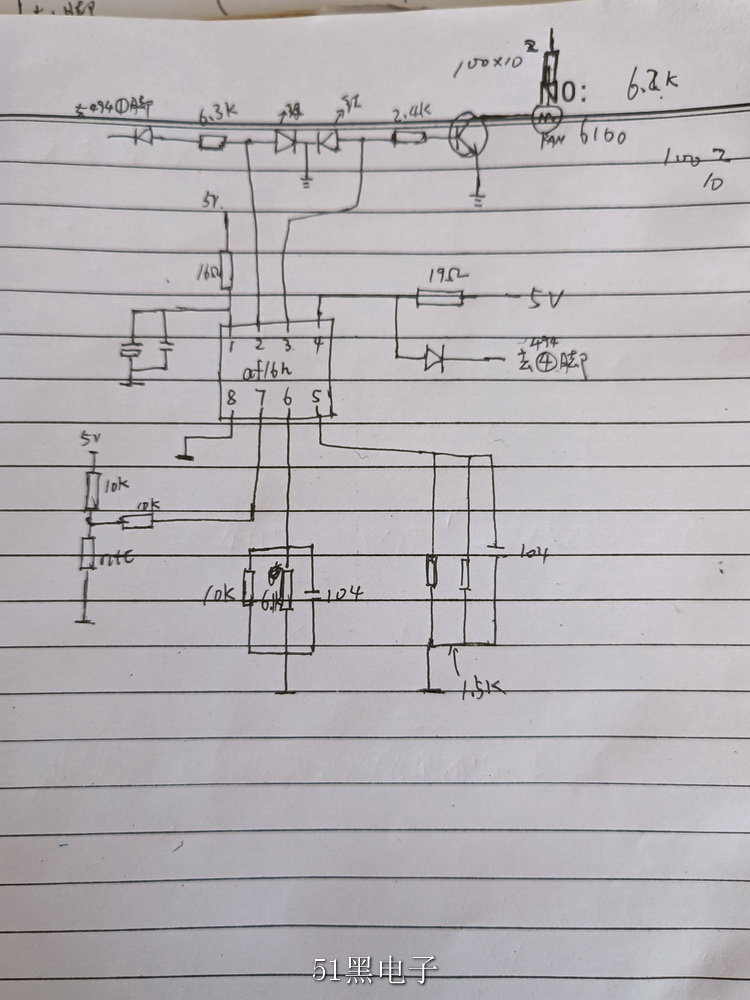 100×10²
6.2K
去494①脚
6.3K
绿
红
2.4K
FAN
6100
100 2
10
5V
16Ω
19Ω
5V
1 2 3 4
af16n
8 7 6 5
494
去④脚
5V
10K
10K
ntc
10K
6.1K
104
104
1.5K
51黑电子